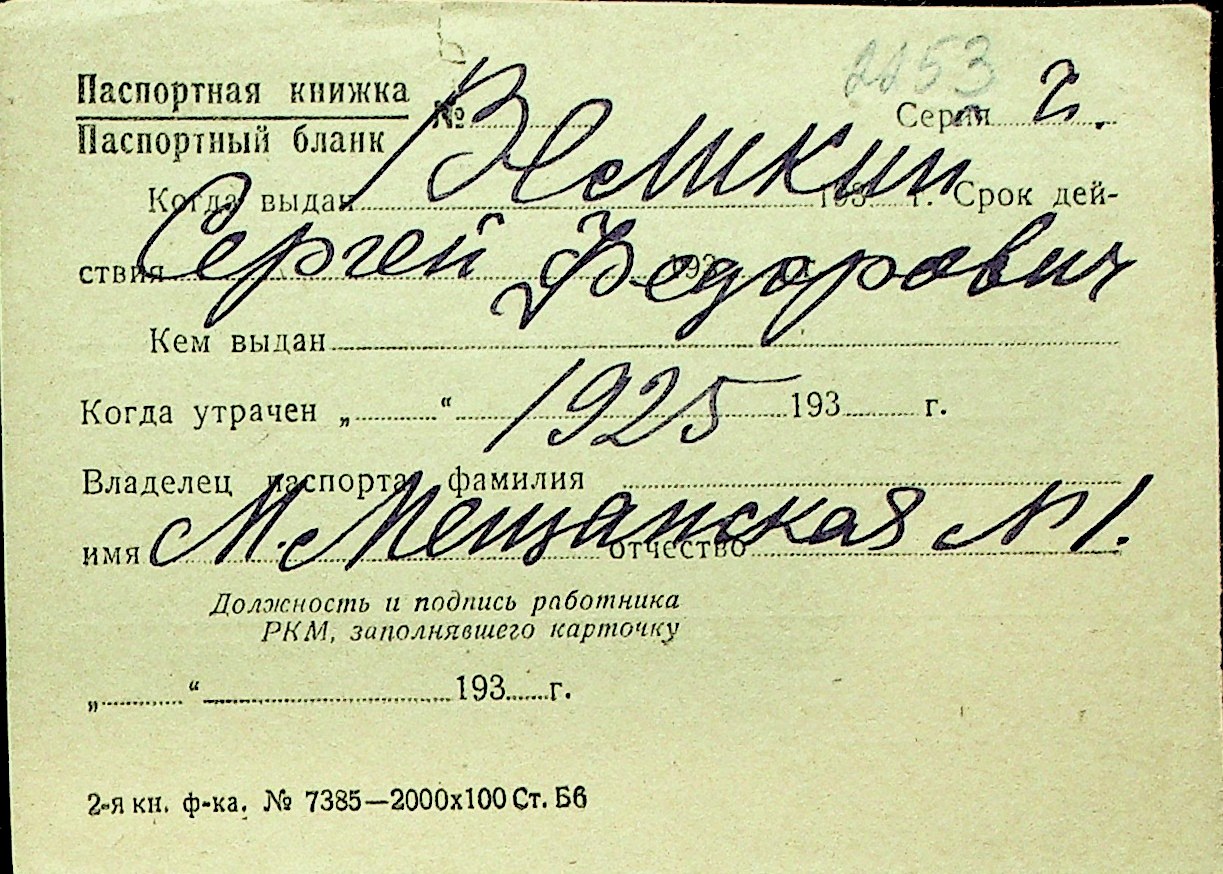 2253
Паспортная книжка
Паспортный бланк
№ Серия 2.
Когда выдан 193 г. Срок дей-
Сергей Федорович
ствия 193 г.
Кем выдан
Когда утрачен „ “ 1925 193 г.
Владелец паспорта фамилия
М. Мещанская № 1.
имя отчество
Должность и подпись работника
РКМ, заполнявшего карточку
„ “ 193 г.
2-я кн. ф-ка. № 7385—2000х100 Ст. Бб